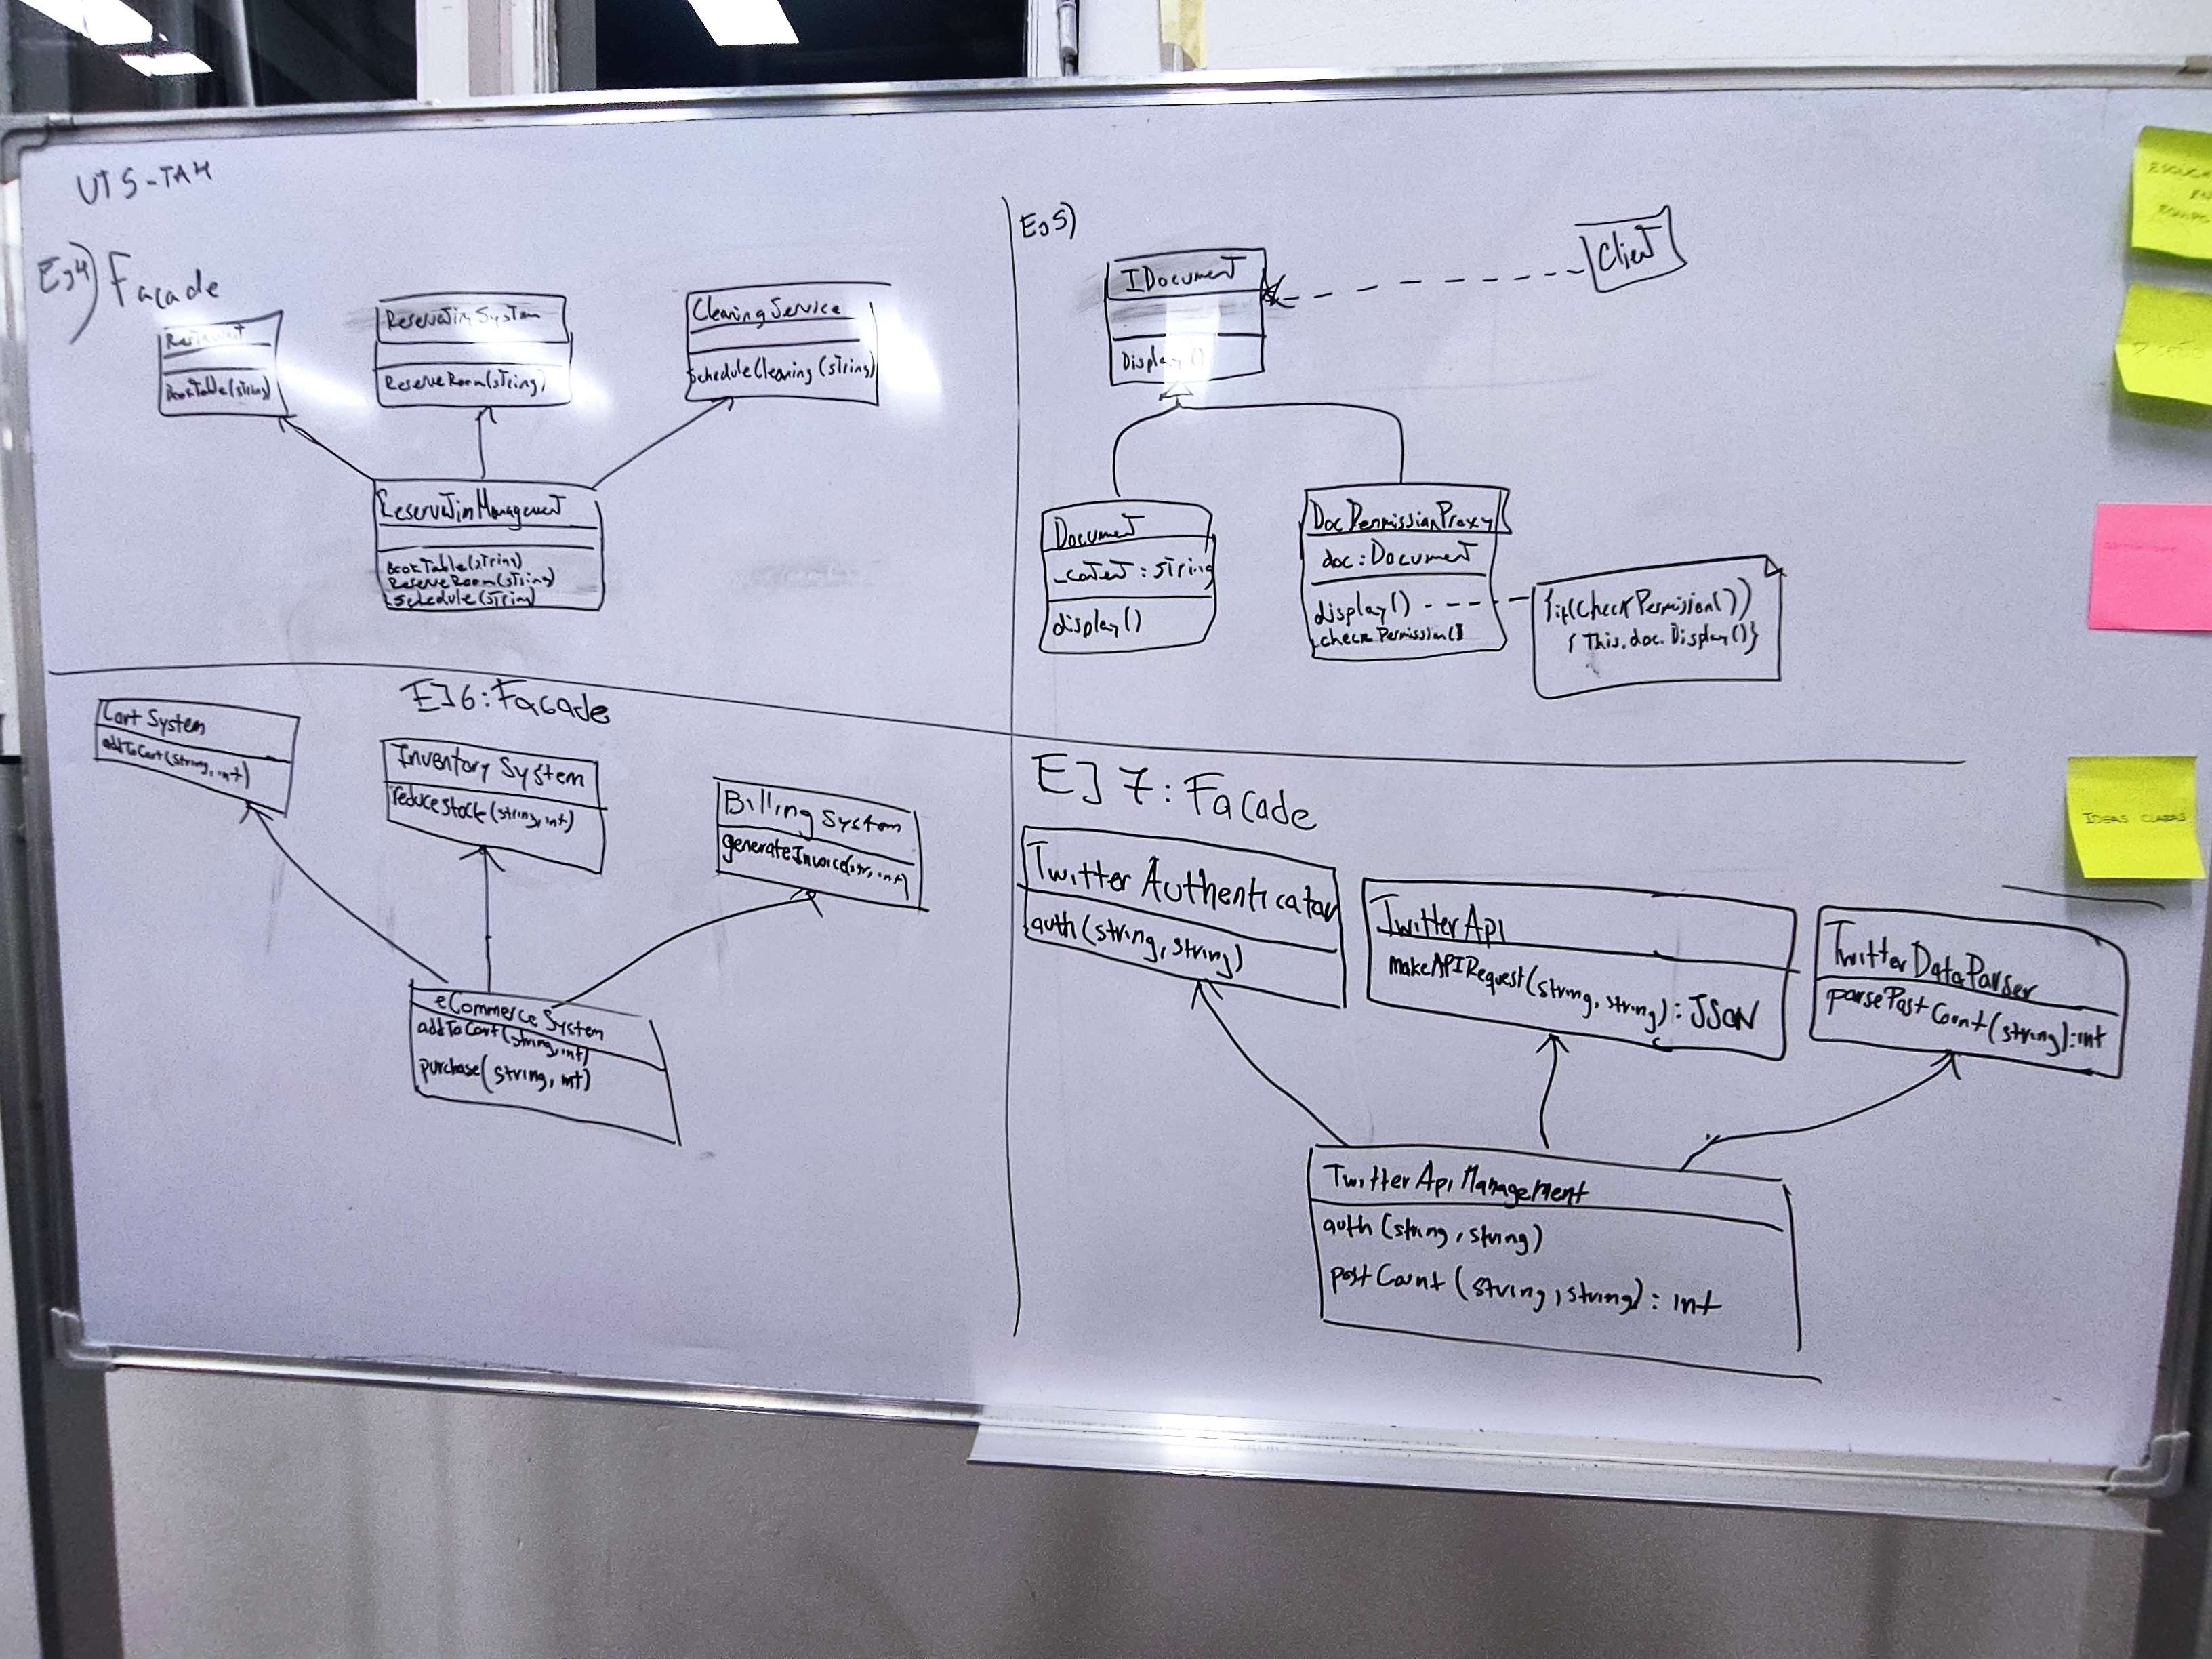 UT5-TA4
Ej4) Facade
Restaurant
BookTable(string)
ReservationSystem
ReserveRoom(string)
CleaningService
ScheduleCleaning(string)
ReservationManagement
BookTable(string)
ReserveRoom(string)
Schedule(string)
Ej5)
IDocument
Display()
Client
Document
-content: string
display()
DocPermissionProxy
doc: Document
display()
-checkPermission()
{if(checkPermission())
{This.doc.Display()}
EJ6: Facade
Cart System
addToCart(string, int)
Inventory System
reduceStock(string, int)
Billing System
generateInvoice(str, int)
eCommerce System
addToCart(string, int)
purchase(string, int)
EJ 7: Facade
Twitter Authenticator
auth(string, string)
TwitterApi
makeAPIRequest(string, string): JSON
TwitterDataParser
parsePostCount(string): int
TwitterApiManagement
auth(string, string)
postCount(string, string): int
EQUIPO
IDEAS CLARAS